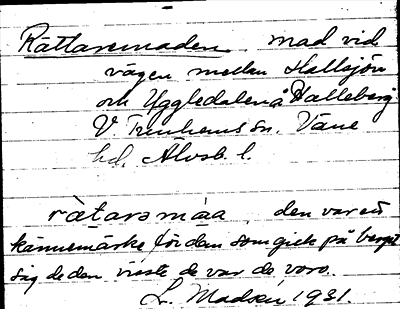 Rättaremaden, mad vid
vägen mellan Hallsjön
och Uggledalen å Halleberg
V. Trunhems sn. Väne
hd. Älvsb. l.
rátarsmáa, den var ett
kännemärke för dem som gick på berget
såg de den visste de var de voro.
L. Madsén 1931.